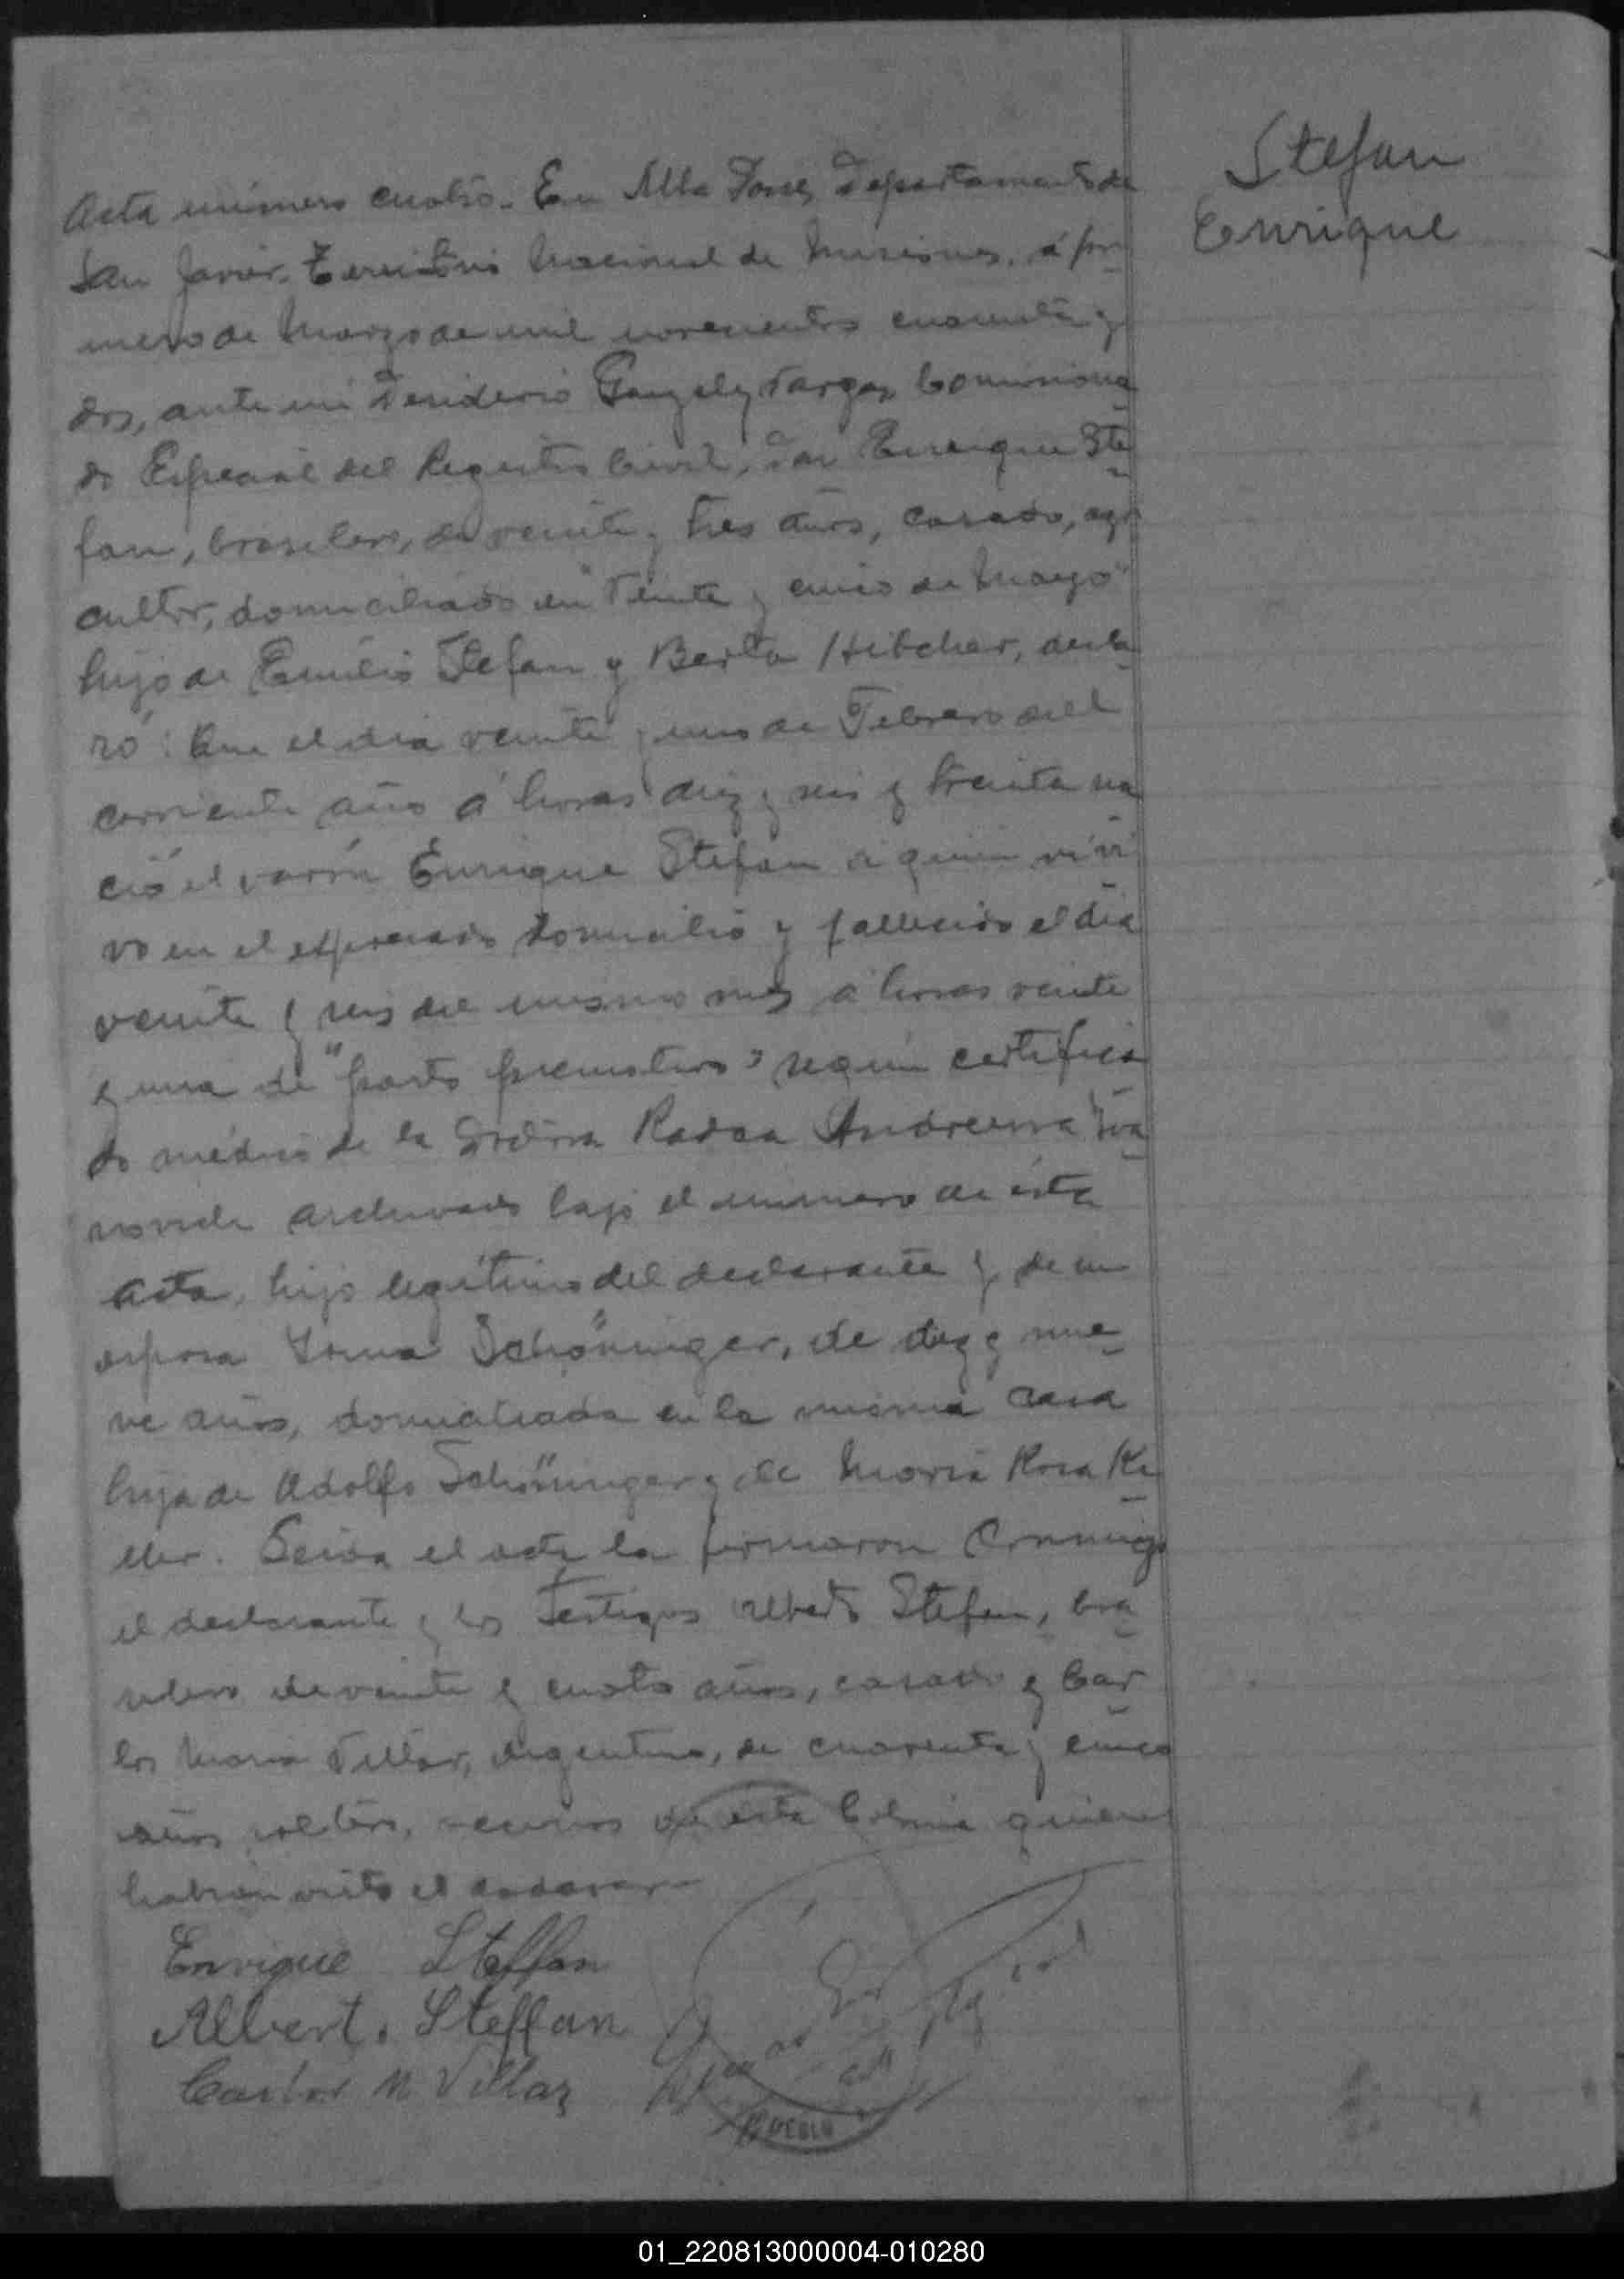 Stefan
Enrique
Acta número cuatro. En Alba Posse, Departamento de
San Javier, Territorio Nacional de Misiones, á pri
mero de Marzo de mil novecientos cuarenta y
dos, ante mi Desiderio Gonzalez Vargas Comisiona
do Especial del Registro Civil, Don Enrique Ste
fan, brasilero, de veinte y tres años, casado, agri
cultor, domiciliado en "Veinte y cinco de Mayo"
hijo de Emilio Stefan y Berta Hibcher, decla
ró: Que el dia veinte y uno de Febrero del
corriente año á horas diez y seis y treinta na
ció el varón Enrique Stefan a quien vi vi
vo en el expresado domicilio y fallecido el dia
veinte y seis del mismo mes a horas veinte
y una de "parto prematuro" según certifica
do médico de la Radca Andreewa Iva
archivado bajo el número de ésta
acta, hijo legítimo del declarante y de su
esposa Irma Schöninger, de diez y nue
ve años, domiciliada en la misma casa
hija de Adolfo Schöninger y de María Rosa Ke
ller. Leida el acta la firmaron conmigo
el declarante y los testigos Alberto Stefan, bra
silero de veinte y cuatro años, casado y Car
los Maria Villar, argentino, de cuarenta y cinco
años soltero, vecinos de esta Colonia quienes
habian visto el cadaver
Enrique Steffan
Albert. Steffan
Carlos M. Villar